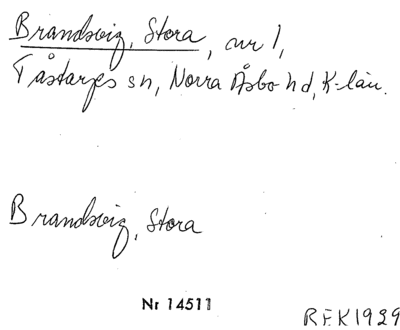 Brandsvig, Stora, nr 1,
Tåstarps sn, Norra Åsbo hd, K-län.
Brandsvig, Stora
Nr 14511
REK1929